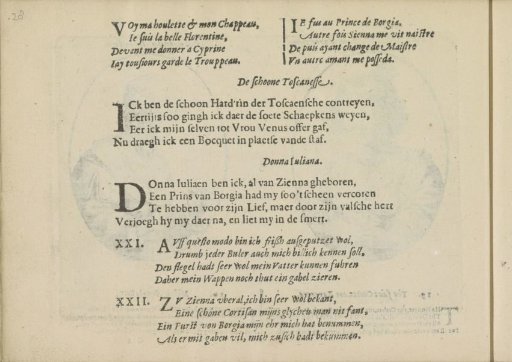 28
Voy ma houlette & mon Chappeau,
Ie suis la belle Florentine,
Devant me donner a Cyprine
Iay tousiours garde le Trouppeau.
IE fus au Prince de Borgia,
Autre fois Sienna me vit naistre
De puis ayant change de Maistre
Un autre amant me posseda.
De schoone Toscanesse.
ICk ben de schoon Hard'rin der Toscaensche contreyen,
Eertijts soo gingh ick daer de soete Schaepkens weyen,
Eer ick mijn selven tot Vrou Venus offer gaf,
Nu draegh ick een Bocquet in plaetse vande staf.
Donna Iuliana.
DOnna Iuliaen ben ick, al van Zienna gheboren,
Een Prins van Borgia had my soo't scheen vercoren
Te hebben voor zijn Lief, maer door zijn valsche hert
Verjoegh hy my daer na, en liet my in de smert.
XXI. AUff questo modo bin ich frisch ausgeputzet wol,
Drumb jeder Buler auch mich billich kennen soll,
Den flegel hadt seer wol mein Vatter kunnen fuhren
Daher mein Wappen noch thut ein gabel zieren.
XXII. ZU Zienna uberal, ich bin seer wol bekant,
Eine schöne Cortisan mijns glychen man nit fant,
Ein Furst von Borgia mijn ehr mich hat benummen,
Als er mit gaben vil, mich zusich hadt bekummen.